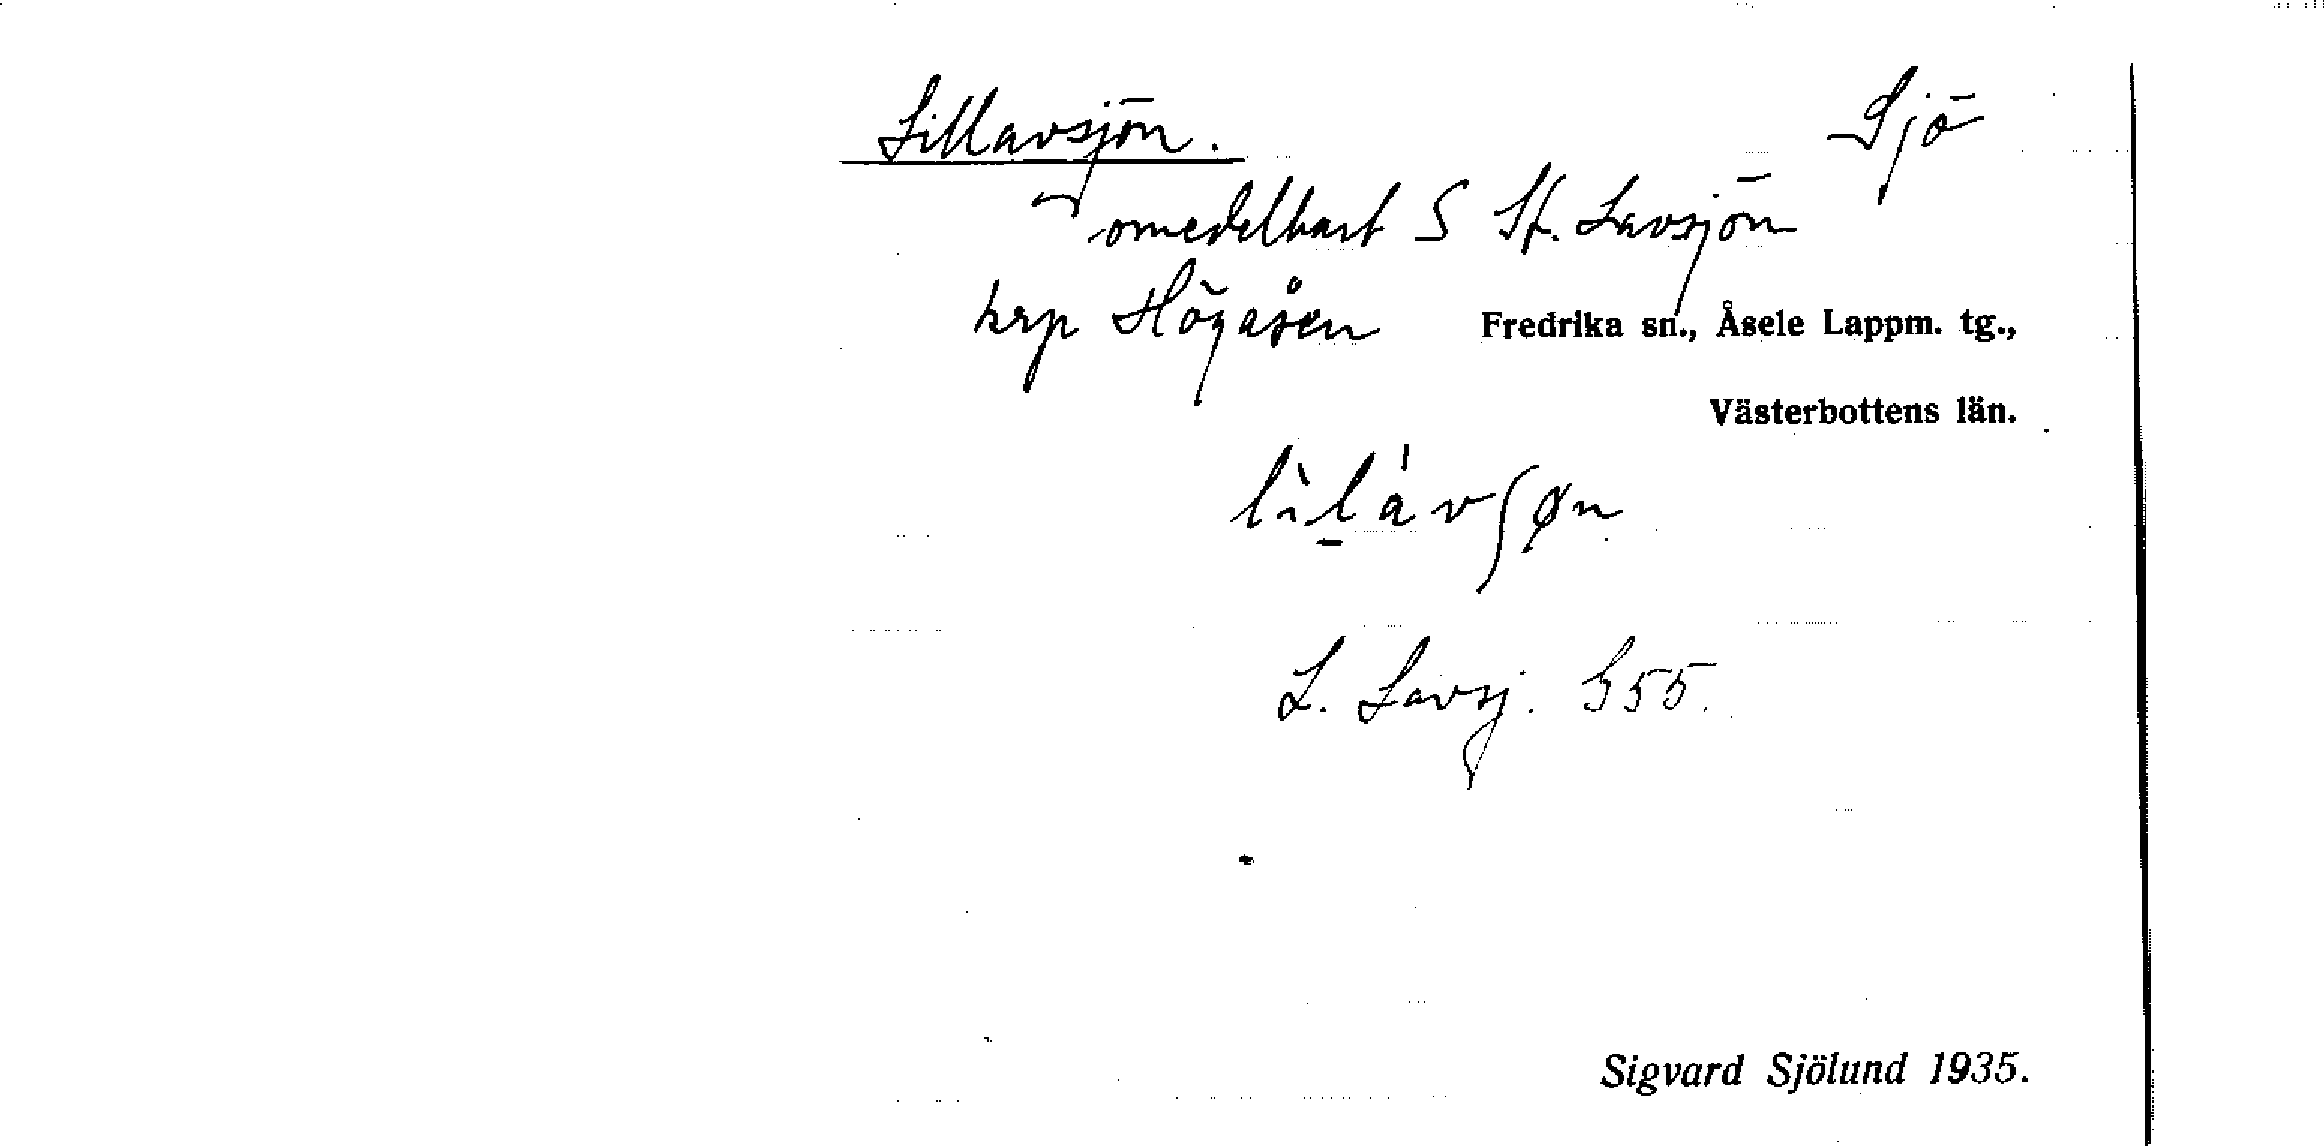 Lillavsjön. Sjö
omedelbart S St. Lavsjön
krp Högåsen Fredrika sn., Åsele Lappm. tg.,
Västerbottens län.
L. Lavsj. S55.
Sigvard Sjölund 1935.